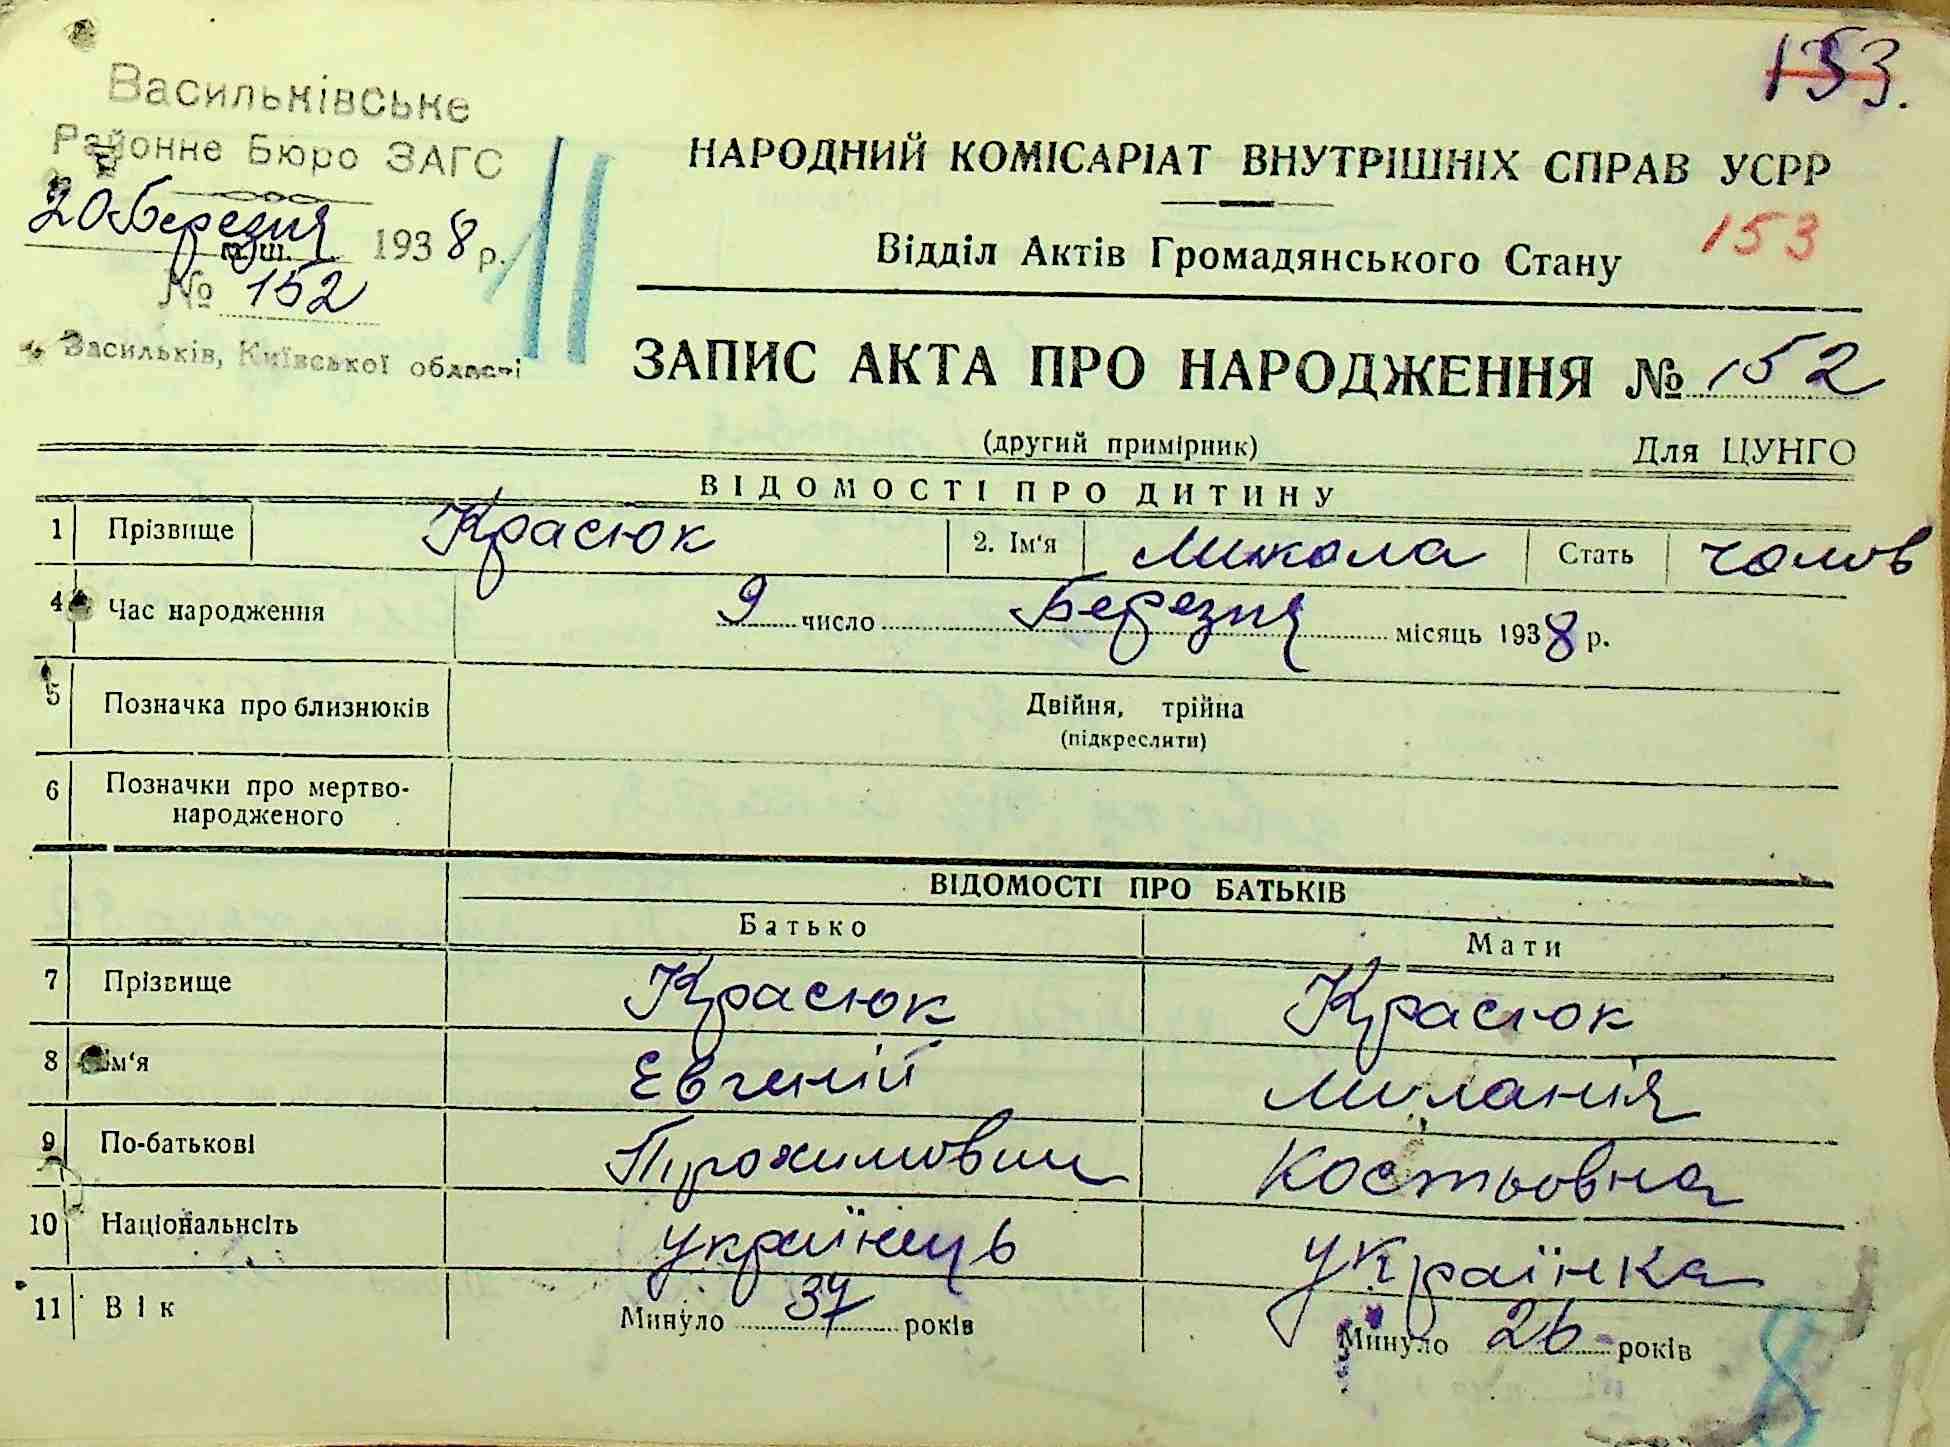 153.
Васильківське
Районне Бюро ЗАГС
20 Березня 1938 р.
№ 152
Васильків, Київської області
11
НАРОДНИЙ КОМІСАРІАТ ВНУТРІШНІХ СПРАВ УСРР
153
Відділ Актів Громадянського Стану
ЗАПИС АКТА ПРО НАРОДЖЕННЯ № 152
(другий примірник) Для ЦУНГО
ВІДОМОСТІ ПРО ДИТИНУ
1 Прізвище Красюк 2. Ім'я Микола Стать чолов
4 Час народження 9 число Березня місяць 1938 р.
5 Позначка про близнюків Двійня, трійна
(підкреслити)
6 Позначки про мертво-
народженого
ВІДОМОСТІ ПРО БАТЬКІВ
Батько Мати
7 Прізвище Красюк Красюк
8 Ім'я Евгеній Миланія
9 По-батькові Прохимович Костьовна
10 Національнсіть українець українка
11 Вік Минуло 37 років Минуло 26 років
8